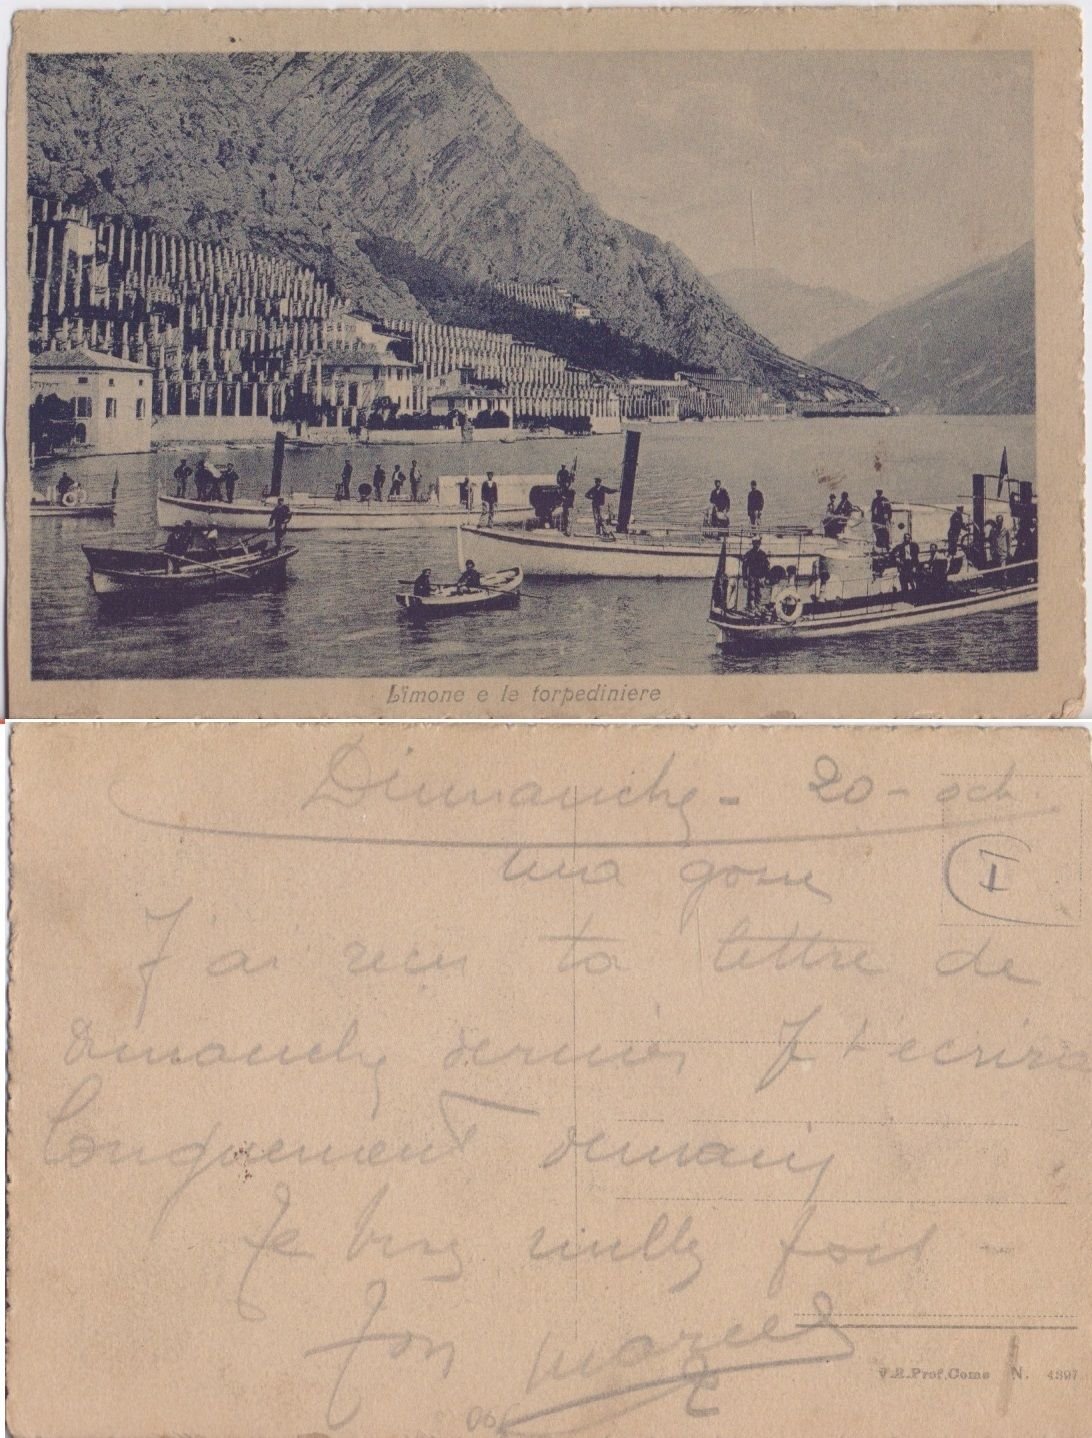 Limone e le torpediniere
Dimanche - 20 - oct.
I
ma gosse
J'ai reçu ta lettre de
dimanche dernier J t'écrirai
longuement demain
Je bise mille fois -
Ton Marcel
V.E.Prof.Como N. 4397